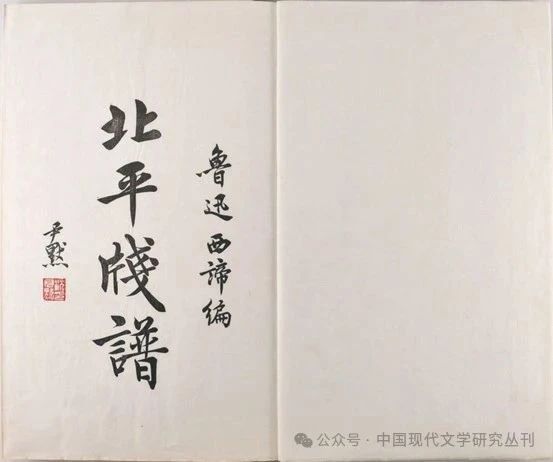 魯迅西諦編
北平牋譜
尹默
公众号·中国现代文学研究丛刊